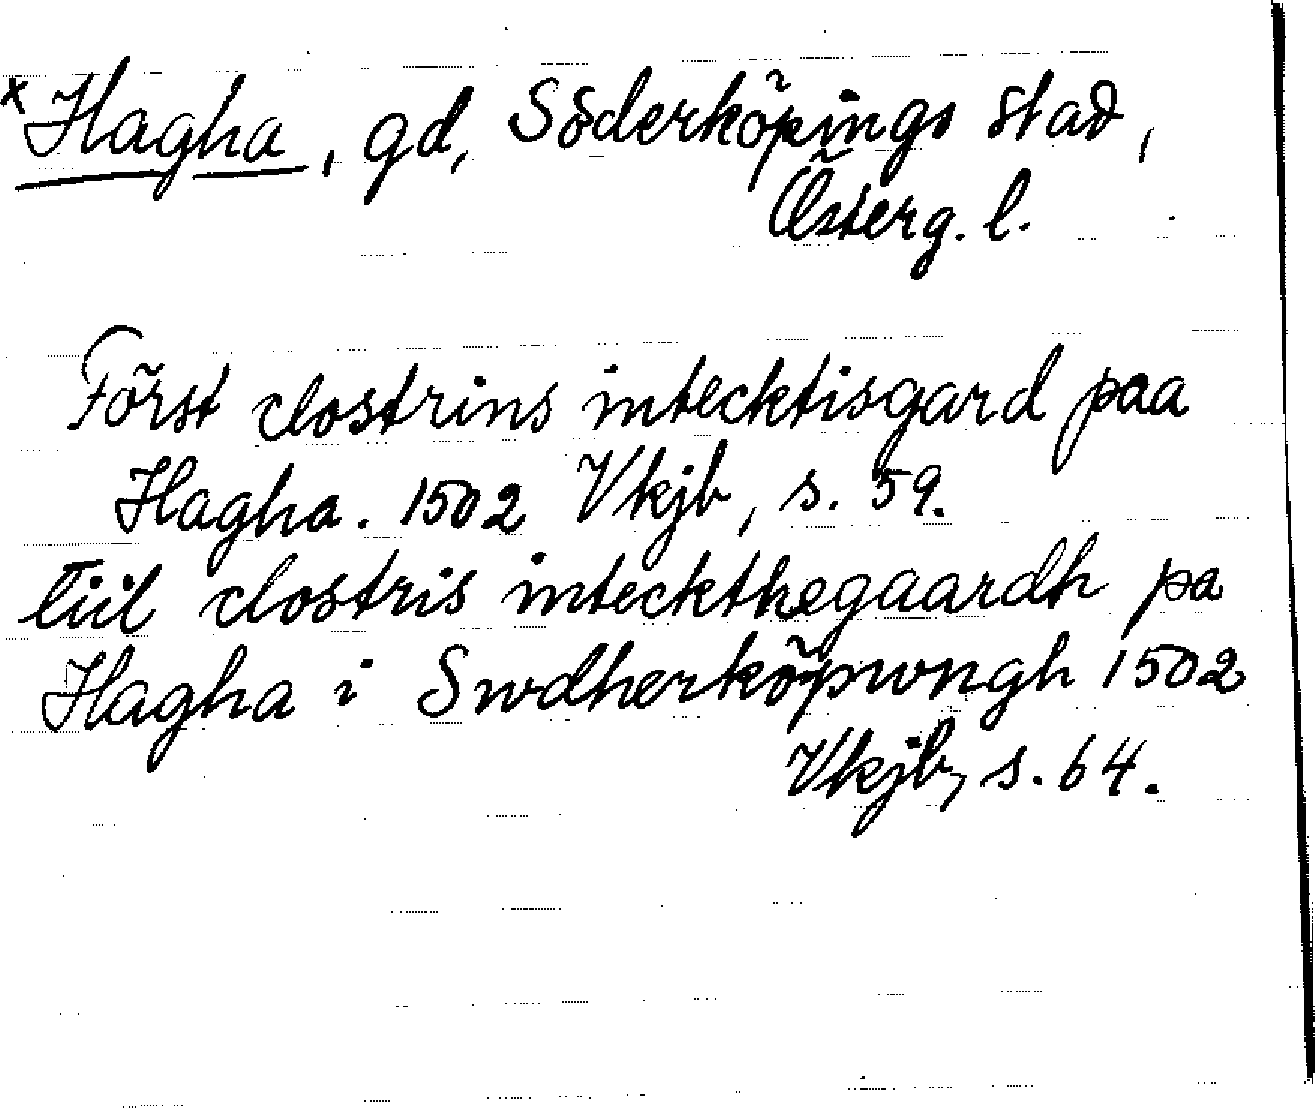 x Hagha, gd, Söderköpings stad,
Österg. l.
Först clostrins intecktisgard paa
Hagha. 1502 Vkjb, s. 59.
Tiil clostris inteckthegaardh pa
Hagha i Swdherköpwngh 1502
Vkjb, s. 64.